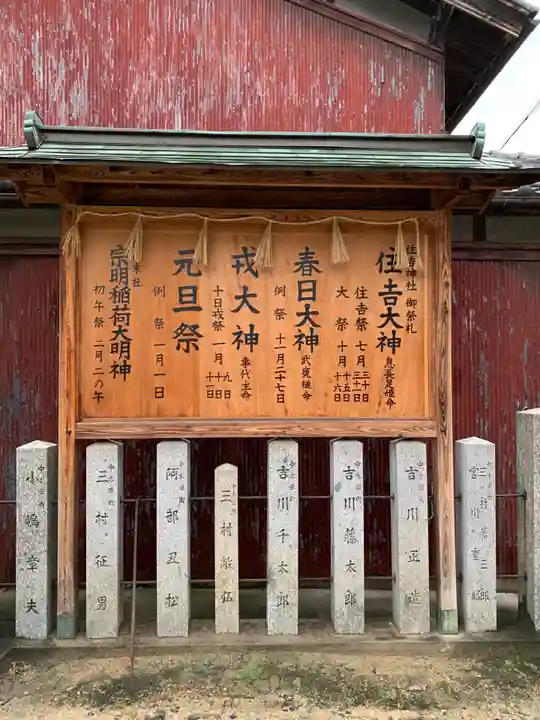 住吉神社 御祭札
住吉大神 息長足姫命
住吉祭 七月 三十日 三十一日
大祭 十月 十五日 十六日
春日大神 武甕槌命
例祭 十一月二十七日
戎大神 事代主命
十日戎祭 一月 九日 十日 十一日
元旦祭
例祭 一月一日
末社
宗明稲荷大明神
初午祭 二月二の午
吉川藤太郎
吉川千太郎
三村
阿部丑松
三村征男
小嶋章夫